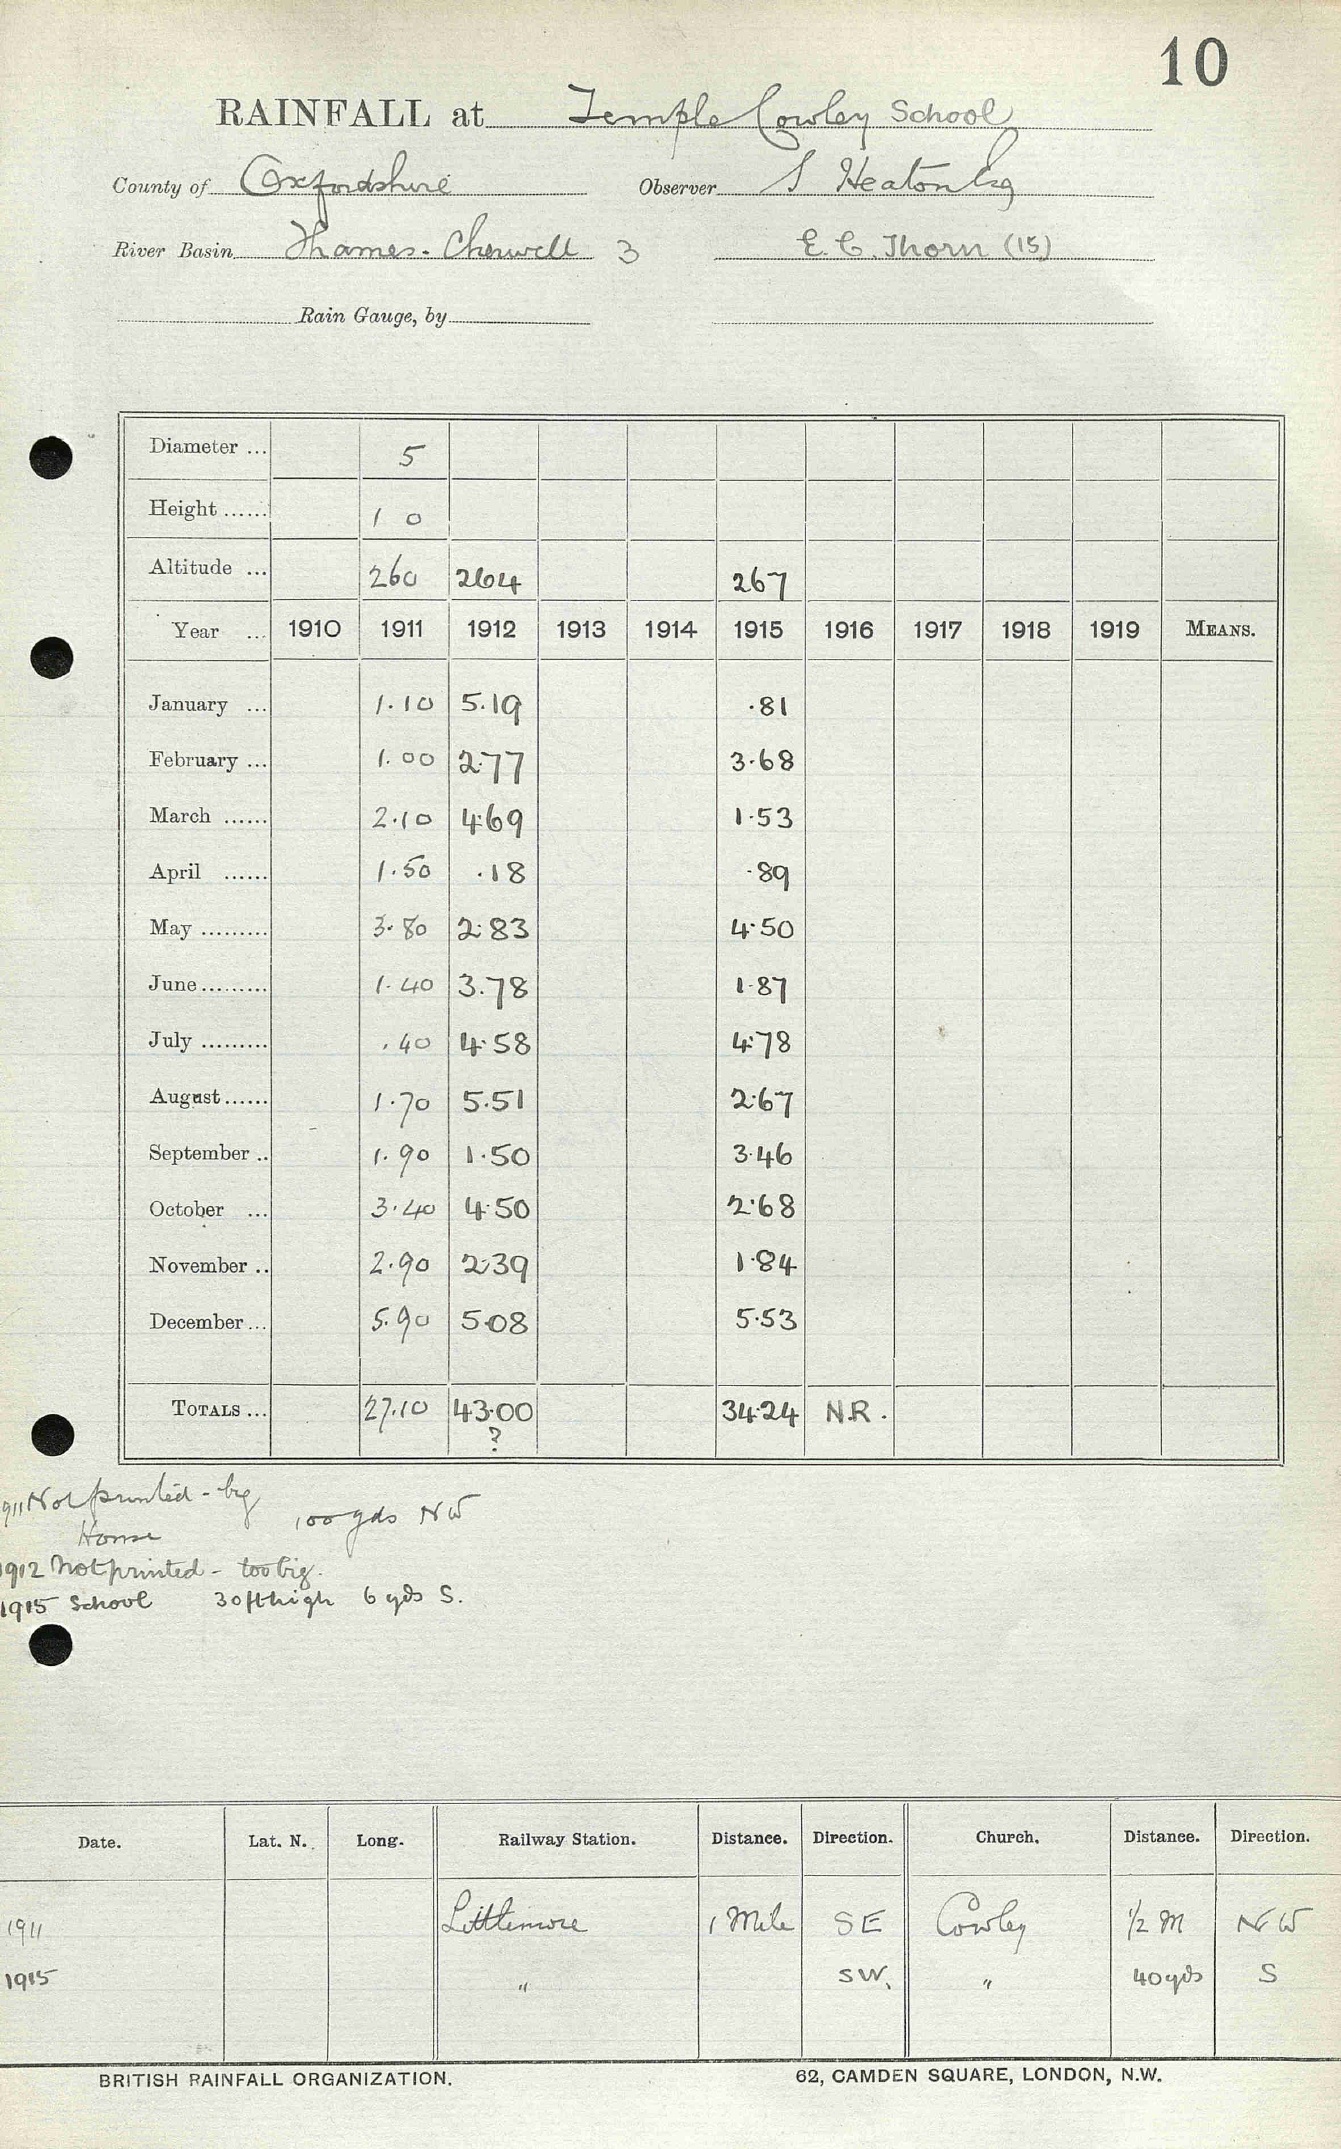 10
RAINFALL at Temple Cowley School
County of Oxfordshire Observer S Heaton Esq
River Basin Thames - Cherwell 3 E. C. Thorn (15)
Rain Gauge, by
Diameter ... 5
Height ...... 1 0
Altitude ... 260 264 267
Year ... 1910 1911 1912 1913 1914 1915 1916 1917 1918 1919 MEANS.
January ... 1.10 5.19 .81
February ... 1.00 2.77 3.68
March ...... 2.10 4.69 1.53
April ...... 1.50 .18 .89
May ......... 3.80 2.83 4.50
June ......... 1.40 3.78 1.87
July ......... .40 4.58 4.78
August ...... 1.70 5.51 2.67
September .. 1.90 1.50 3.46
October ... 3.40 4.50 2.68
November .. 2.90 2.39 1.84
December ... 5.90 5.08 5.53
TOTALS ... 27.10 43.00 34.24 N.R.
?
1911 Not printed - big
House 100 yds NW
1912 Not printed - too big.
1915 School 30 ft high 6 yds S.
Date. Lat. N. Long. Railway Station. Distance. Direction. Church. Distance. Direction.
1911 Littlemore 1 Mile SE Cowley 1/2 M NW
1915 " SW. " 40 yds S
BRITISH RAINFALL ORGANIZATION. 62, CAMDEN SQUARE, LONDON, N.W.